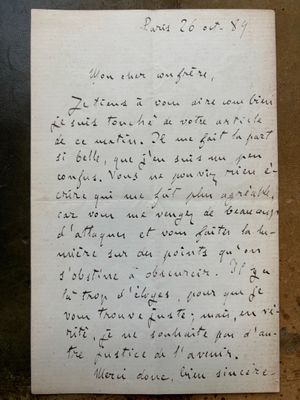 Paris 20 oct. 89
Mon cher confrère,
Je tiens à vous dire combien
je suis touché de votre article
de ce matin. Il me fait la part
si belle, que j'en suis un peu
confus. Vous ne pouviez rien é-
crire qui me fût plus agréable,
car vous me vengez de beaucoup
d'attaques et vous faites la lu-
mière sur des points qu'on
s'obstine à obscurcir. Il y a
là trop d'éloges, pour que je
vous trouve juste; mais, en vé-
rité, je ne souhaite pas d'au-
tre justice de l'avenir.
Merci donc, bien sincère-